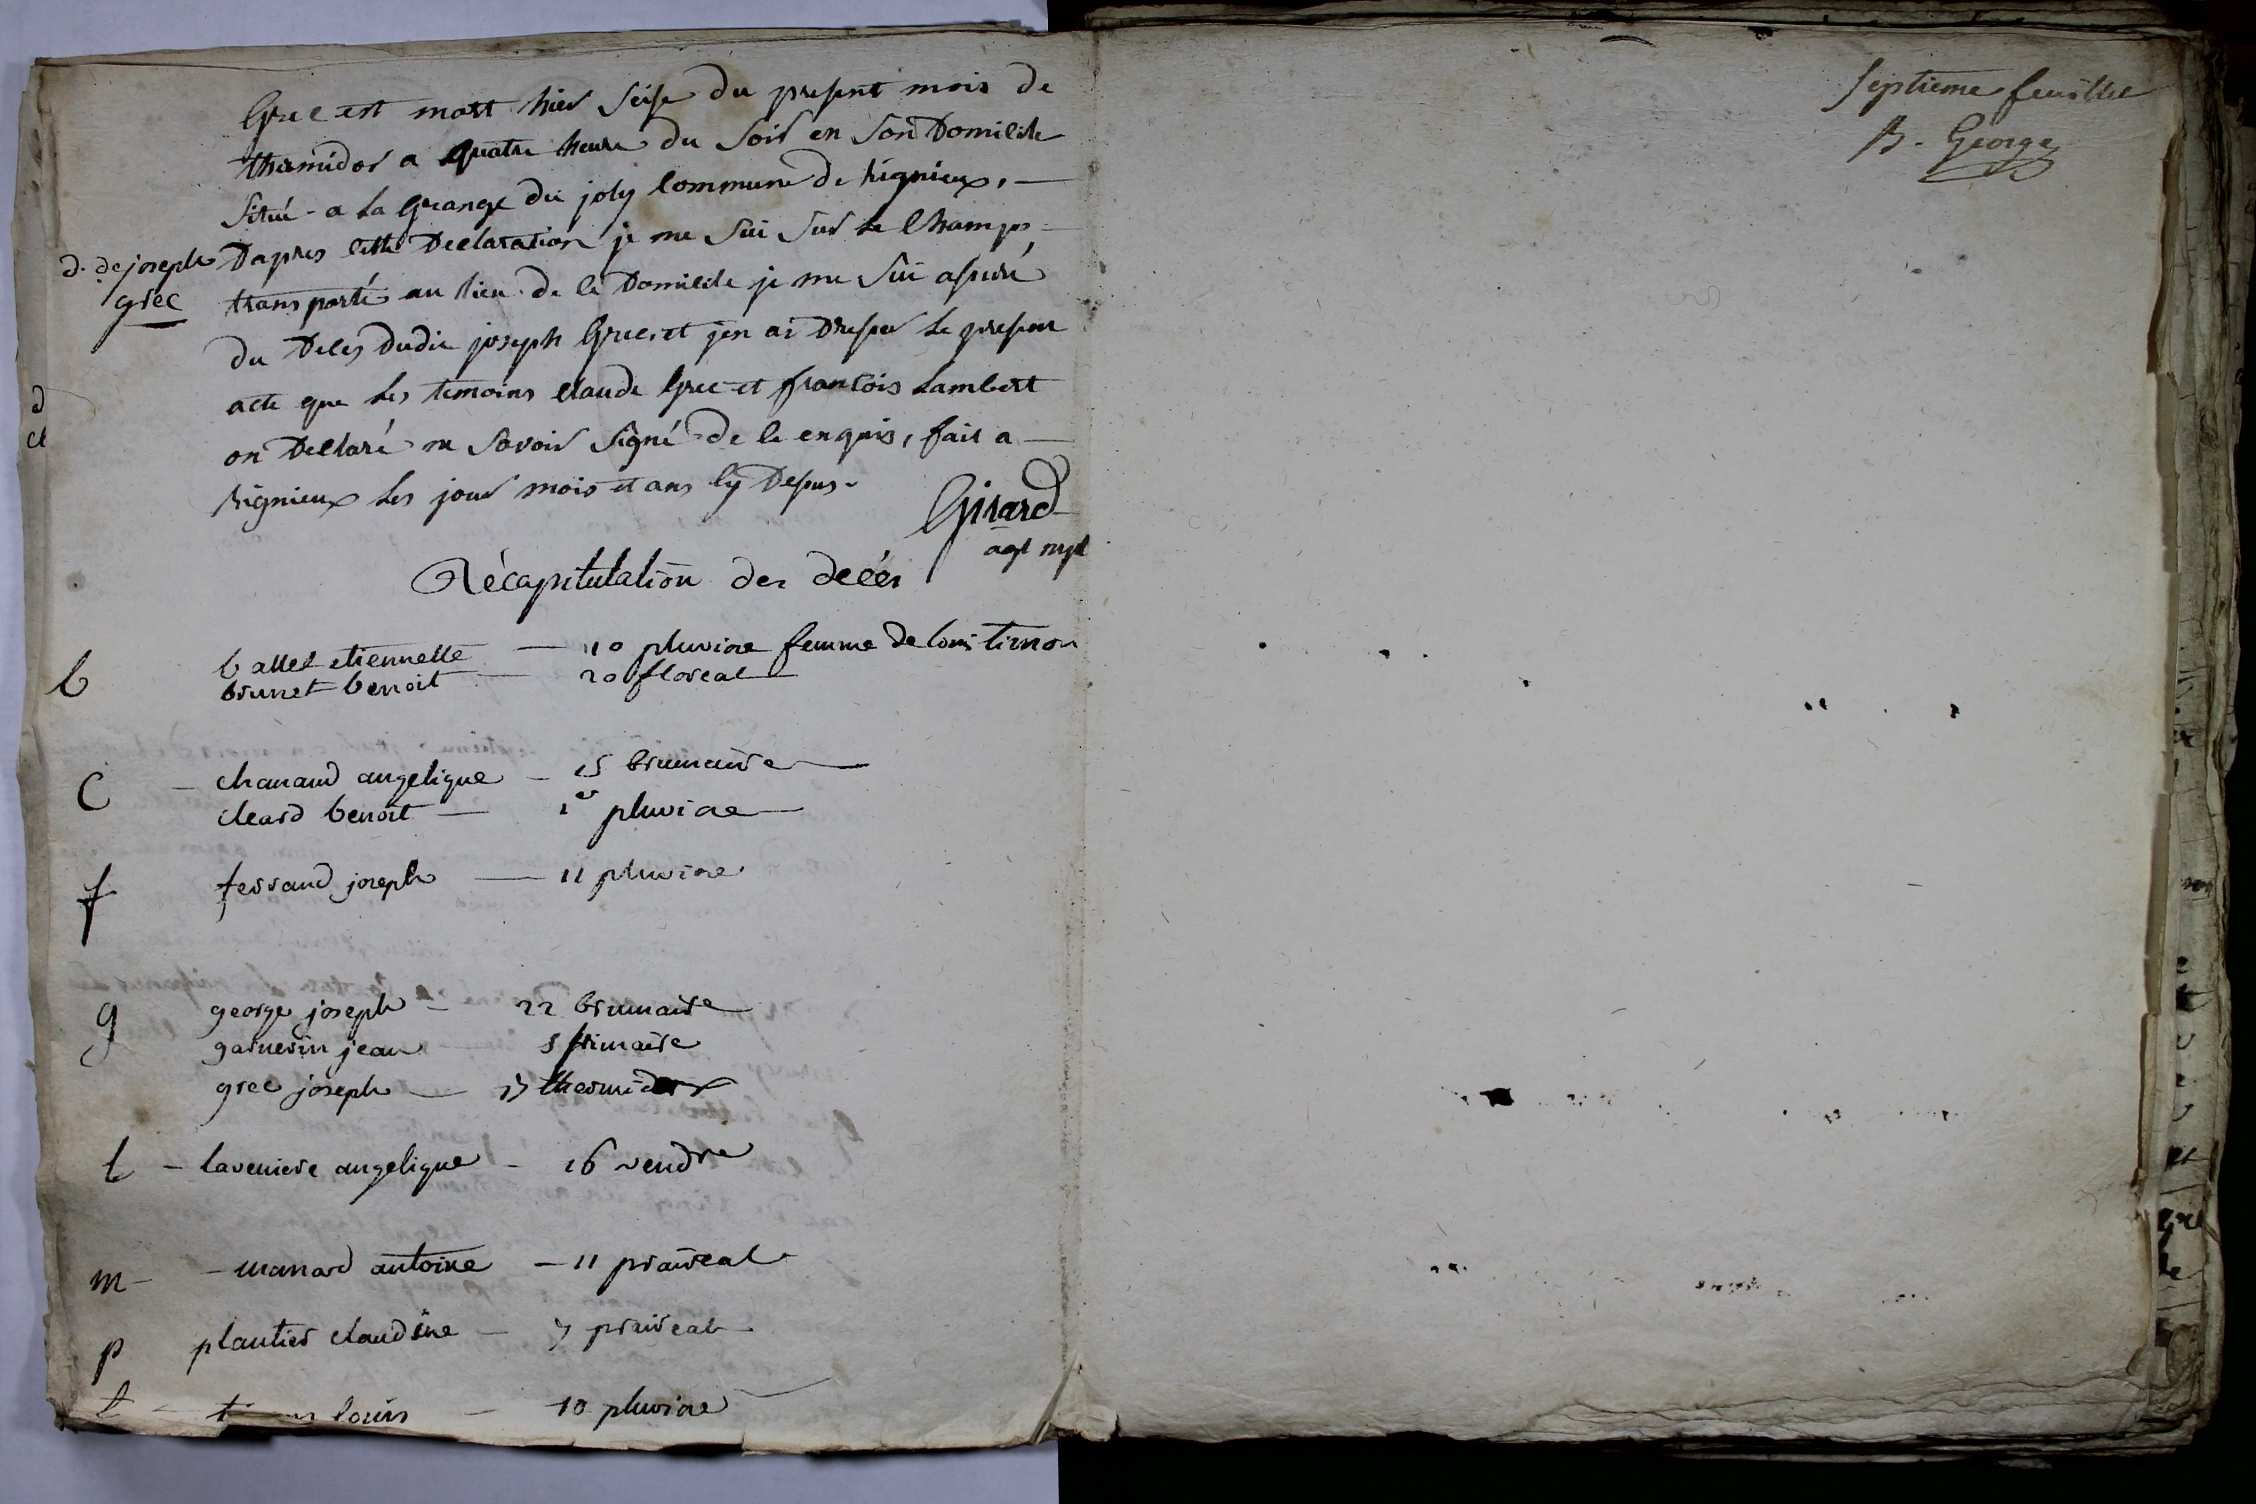 Grec est mort hier seise du present mois de
thermidor a quatre heure du soir en son Domicile
situé a La Grange du joly Commune de Rignieux,
D. de joseph
grec
Dapres cette Declaration je me sui sur le Champs
transporté au lieu de ce Domicile je me sui assuré
du Deces dudit joseph Grec et jen ai Dresser le present
acte que les temoins Claude Grec et francois Lambert
on Declaré ne savoir signé de ce enquis, fait a
Rignieux les jour mois et ans cy Desus.
Girard
agt mpl
Récapitulation des décés
b ballet etiennette — 10 pluviose femme de louis timon
brunet benoit — 20 floreal
C — chanaud angelique — 15 brumaire
cleard benoit — 1er pluviose
f ferrand joseph — 11 pluviose
g george joseph — 22 brumaire
garnerin jean — 8 frimaire
grec joseph — 17 thermidor
l — laveniere angelique — 16 vendre
m — manard antoine — 11 praireal
p plantier claudine — 7 praireal
t — louis — 10 pluviose
Septieme feuillet
B. George